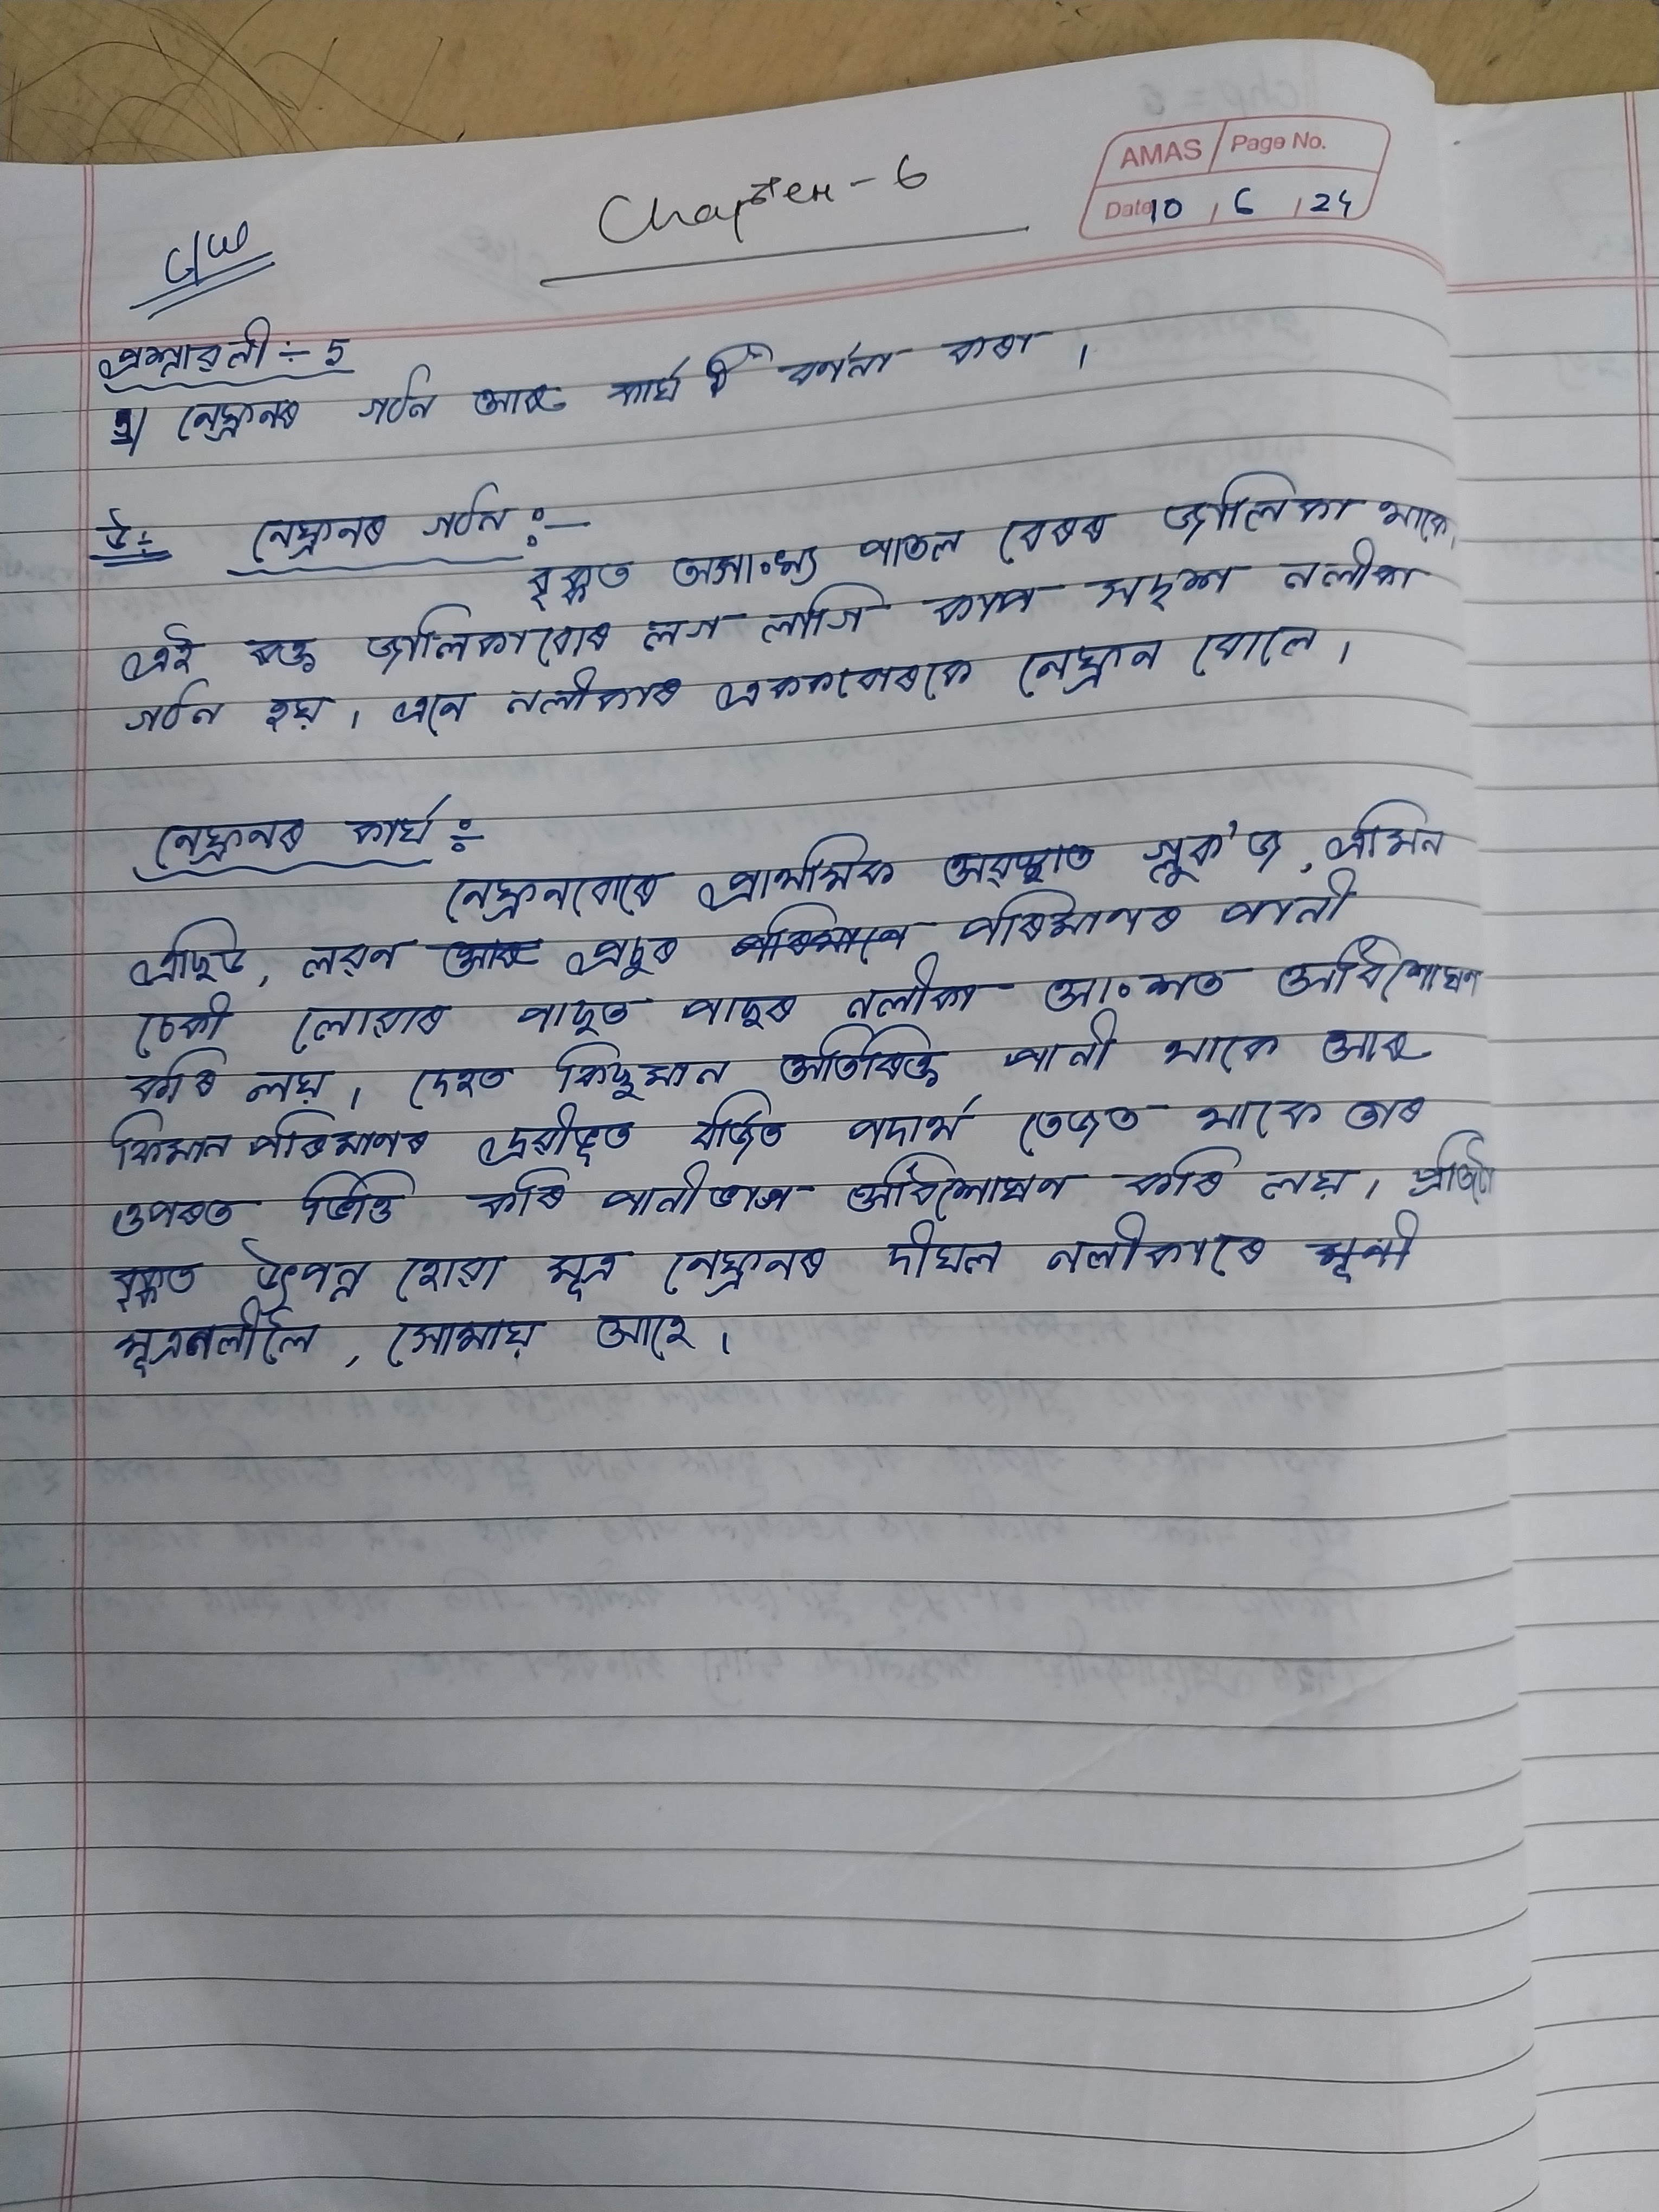 AMAS Page No.
Date 10 / 6 / 24
Chapter - 6
C/W
প্ৰশ্নাৱলী ÷ 5
1) নেফ্ৰনৰ গঠন আৰু কাৰ্য বৰ্ণনা কৰা ।
উঃ নেফ্ৰনৰ গঠন :-
বৃক্কত অসাংখ্য পাতল বেৰৰ জালিকা থাকে,
এই ৰক্ত জালিকাবোৰ লগ লাগি কাপ সদৃশ নলীকা
গঠন হয় । এনে নলীকাৰ এককবোৰকে নেফ্ৰন বোলে ।
নেফ্ৰনৰ কাৰ্য :-
নেফ্ৰনবোৰে প্ৰাথমিক অৱস্থাত গ্লুক'জ, এমিন
এছিড, লৱন আৰু প্ৰচুৰ পৰিমাণে পৰিমাণৰ পানী
চেকী লোৱাৰ পাছত পাছৰ নলীকা আংশত অবিশোষণ
কৰি লয় । দেহত কিছুমান অতিৰিক্ত পানী থাকে আৰু
কিমান পৰিমাণৰ দ্ৰৱীভূত বৰ্জিত পদাৰ্থ তেজত থাকে তাৰ
ওপৰত ভিত্তি কৰি পানীভাগ অবিশোষণ কৰি লয় । প্ৰতিটো
বৃক্কত উৎপন্ন হোৱা মূত্ৰ নেফ্ৰনৰ দীঘল নলীকাৰে
মূত্ৰনলীলৈ, সোমায় আহে ।